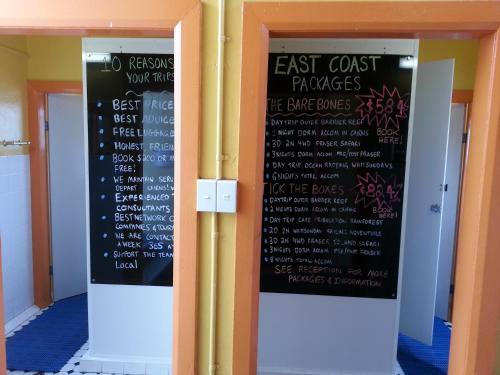 10 REASONS
YOUR TRIPS
BEST PRICE
BEST ADVICE
FREE LUGGAGE
HONEST, FRIEN
BOOK $200 OR M
FREE!
WE MAINTAIN SERV
DEPART
EXPERIENCED
CONSULTANTS
BEST NETWORK O
COMPANIES & TOUR
WE ARE CONTAC
A WEEK 365
SUPPORT THE TEAM
Local
EAST COAST
PACKAGES
THE BARE BONES
BOOK HERE!
DAYTRIP OUTER BARRIER REEF
1 NIGHT DORM ACCOM IN CAIRNS
3D 2N 4WD FRASER SAFARI
3 NIGHTS DORM ACCOM PRE/POST FRASER
DAY TRIP OCEAN RAFTING WHITSUNDAYS
6 NIGHTS TOTAL ACCOM
TICK THE BOXES
BOOK HERE!
DAYTRIP OUTER BARRIER REEF
2 NIGHTS DORM ACCOM IN CAIRNS
DAY TRIP CAPE TRIBULATION RAINFOREST
2D 2N WHITSUNDAY SAILING ADVENTURE
3D 2N 4WD FRASER ISLAND SAFARI
3 NIGHTS DORM ACCOM PRE/POST FRASER
8 NIGHTS TOTAL ACCOM
SEE RECEPTION FOR MORE
PACKAGES & INFORMATION